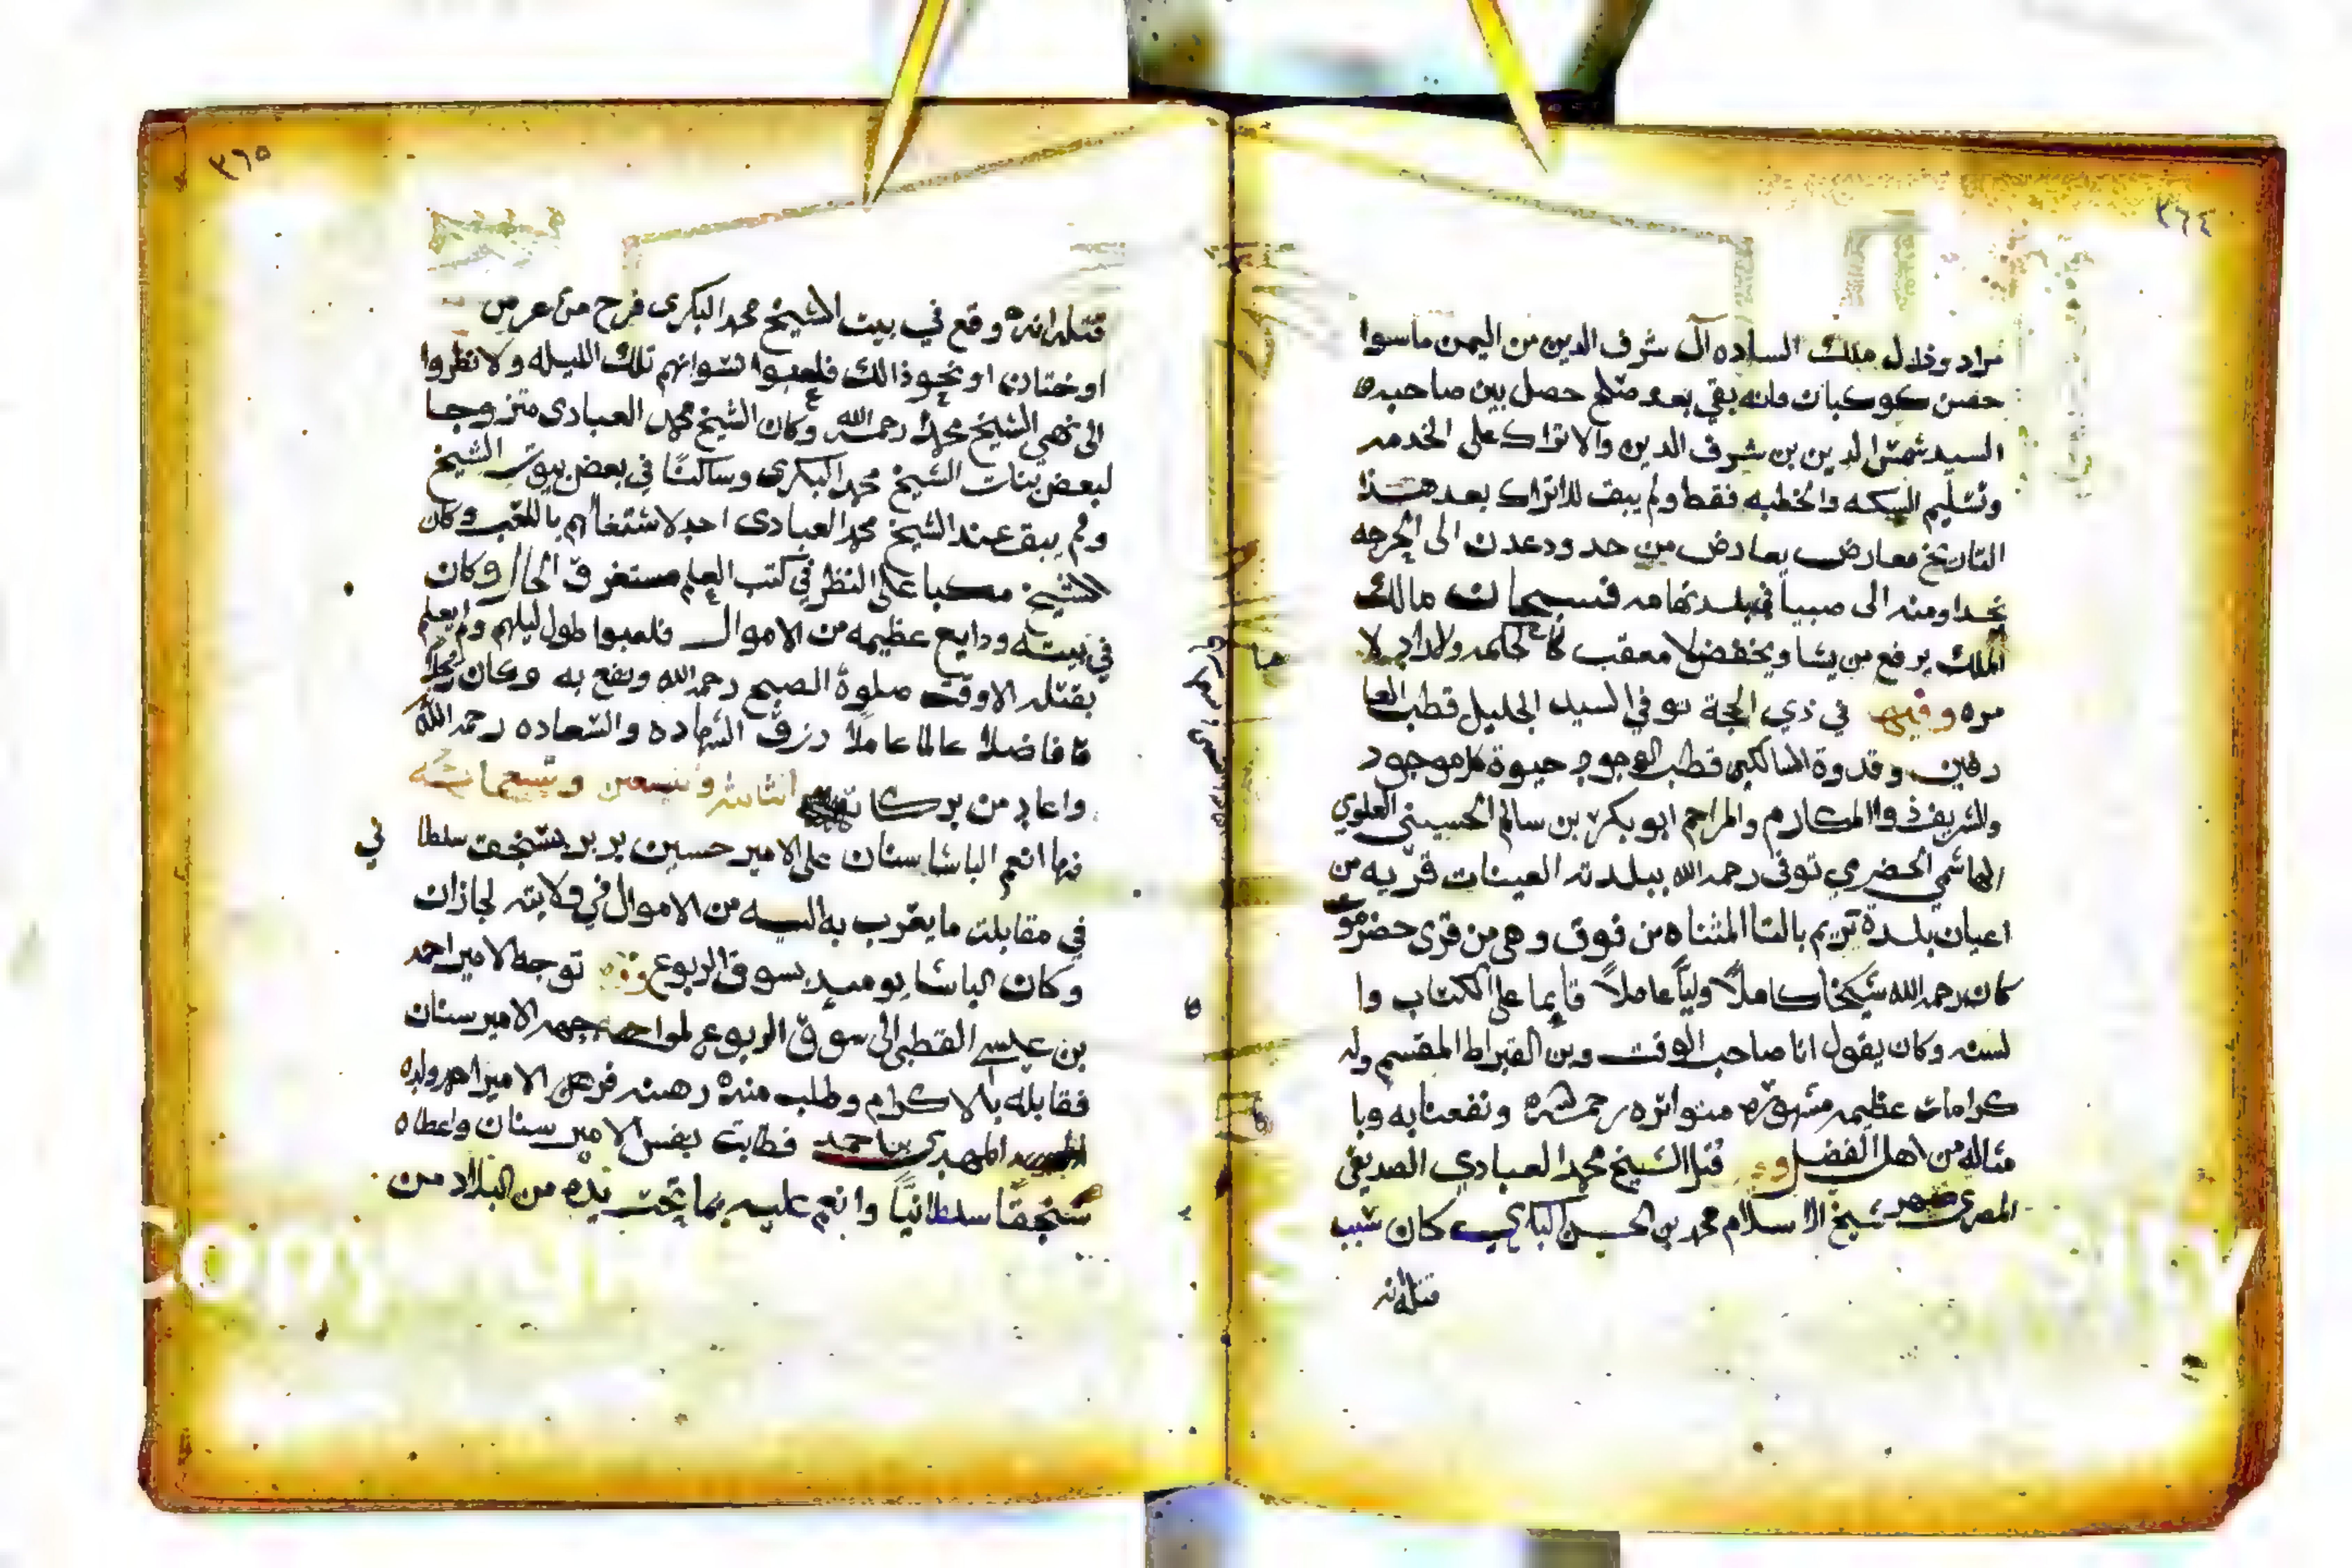 ٣٦٤
مراد وخلال ملك الساده آل شرف الدين من اليمن ماسوا
حصن كوكبان فانه بقي بعد صلح حصل بين صاحبه
السيد شمس الدين بن شرف الدين والاتراك على الخدمه
وتسليم السكه والخطبه فقط ولم يبق للاتراك بعد هذا
التاريخ معارض يعارض من حدود عدن الى الحرجه
نجدا ومنه الى صبيا في بلد تهامه فسبحان مالك
الملك يرفع من يشا ويخفض لا معقب لحكمه ولا راد لا
مره وفيها في ذي الحجة توفي السيد الجليل قطب العا
رفين وقدوة السالكين قطب الوجود حيوة كل موجود
والشريف ذوا المكارم والمراحم ابو بكر بن سالم الحسيني العلوي
الهاشمي الحضرمي توفى رحمه الله ببلدته العينات قريه من
اعيان بلدة تريم بالتا المثناه من فوق وهي من قرى حضرمو
كان رحمه الله شيخا كاملاً وليّاً عاملاً قايما على الكتاب وا
لسنه وكان يقول انا صاحب الوقت وبن القيراط المقسم وله
كرامات عظيمه مشهوره متواتره رحمه الله ونفعنا به وبا
مثاله من اهل الفضل وفيها قتل الشيخ محمد العبادي الصديقي
المصري صهر شيخ الاسلام محمد بن الحسن البكري كان سبب
قتله انه
٣٦٥
قتله انه وقع في بيت الشيخ محمد البكري فرح من عرس
او ختان او نحو ذالك فلعبوا نسوانهم تلك الليله ولا نظروا
الى نهي الشيخ محمد رحمه الله وكان الشيخ محمد العبادي متزوجا
لبعض بنات الشيخ محمد البكري وساكنًا في بعض بيوت الشيخ
ولم يبق عند الشيخ محمد العبادي احد لاشتغالهم باللعب وكان
الشيخ مكبا على النظر في كتب العلم مستغرق الحال وكان
في بيته ودايع عظيمه من الاموال فلعبوا طول ليلهم ولم يعلم
بقتله الا وقت صلوة الصبح رحمه الله ونفع به وكان رجلا
فاضلا عالما عاملا رزق الشهاده والسعاده رحمه الله
واعاد من بركاته وتسعين وتسعمائه
فيها انعم الباشا سنان على الامير حسين بربر بسنجق سلطا ني
في مقابلت ما يقرب به اليه من الاموال في ولايته لجازان
وكان الباشا يوميد بسوق الربوع توجه الامير احمد
بن عيسى القطبي الى سوق الربوع لمواجهه الامير سنان
فقابله بالاكرام وطلب منه رهنه فرهن الامير احمد ولده
المهدي بن احمد فطابت نفس الامير سنان واعطاه
سنجقًا سلطانيًا وانعم عليه بما تحت يده من البلاد من